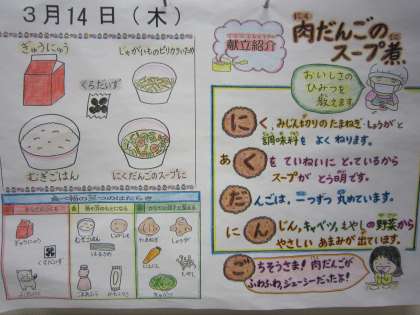 3月14日(木)
ぎゅうにゅう
じゃがいものピリカラいため
くろだいず
むぎごはん
にくだんごのスープに
献立紹介
肉だんごの
スープ煮
おいしさの
ひみつを
教えます
にく、みじんぎりのたまねぎ・しょうがと
調味料を よく ねります。
あくを ていねいに とっているから
スープが とう明です。
だんごは、一つずつ 丸めています。
にんじん、キャベツ、もやしの野菜から
やさしい あまみが 出ています。
ごちそうさま!肉だんごが
ふわふわ、ジューシーだったよ!
ぎゅうにゅう
むぎごはん
じゃがいも
たまねぎ
しょうが
にんじん
キャベツ